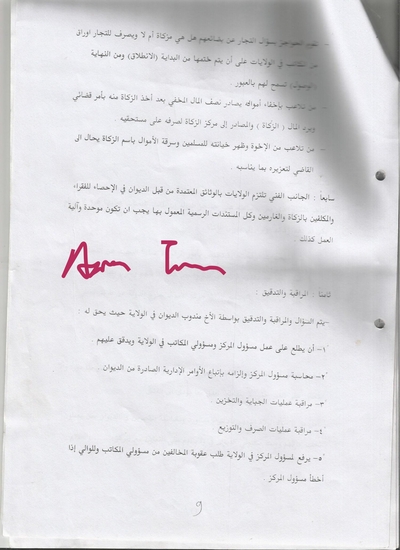 - تقوم الحواجز بسؤال التجار عن بضائعهم هل هي مزكاة أم لا ويصرف للتجار اوراق
من المكاتب في الولايات على أن يتم ختمها من البداية (الانطلاق) ومن النهاية
(الوصول) تسمح لهم بالعبور.
- من تلاعب بإخفاء أمواله يصادر نصف المال المخفي بعد أخذ الزكاة منه بأمر قضائي
ويرد المال (الزكاة) والمصادر إلى مركز الزكاة لصرفه على مستحقيه.
- من تلاعب من الإخوة وظهر خيانته للمسلمين وسرقة الأموال باسم الزكاة يحال الى
القاضي لتعزيره بما يناسبه.
سابعاً: الجانب الفني تلتزم الولايات بالوثائق المعتمدة من قبل الديوان في الإحصاء للفقراء
والمكلفين بالزكاة والغارميين وكل المستندات الرسمية المعمول بها يجب ان تكون موحدة وآلية
العمل كذلك.
ثامناً: المراقبة والتدقيق:
-يتم السؤال والمراقبة والتدقيق بواسطة الأخ مندوب الديوان في الولاية حيث يحق له:
١- أن يطلع على عمل مسؤول المركز ومسؤولي المكاتب في الولاية ويدقق عليهم
٢- محاسبة مسؤول المركز وإلزامه بإتباع الأوامر الإدارية الصادرة من الديوان.
٣- مراقبة عمليات الجباية والتخزين
٤- مراقبة عمليات الصرف والتوزيع
٥- يرفع لمسؤول المركز في الولاية طلب عقوبة المخالفين من مسؤولي المكاتب وللوالي إذا
أخطأ مسؤول المركز.
9